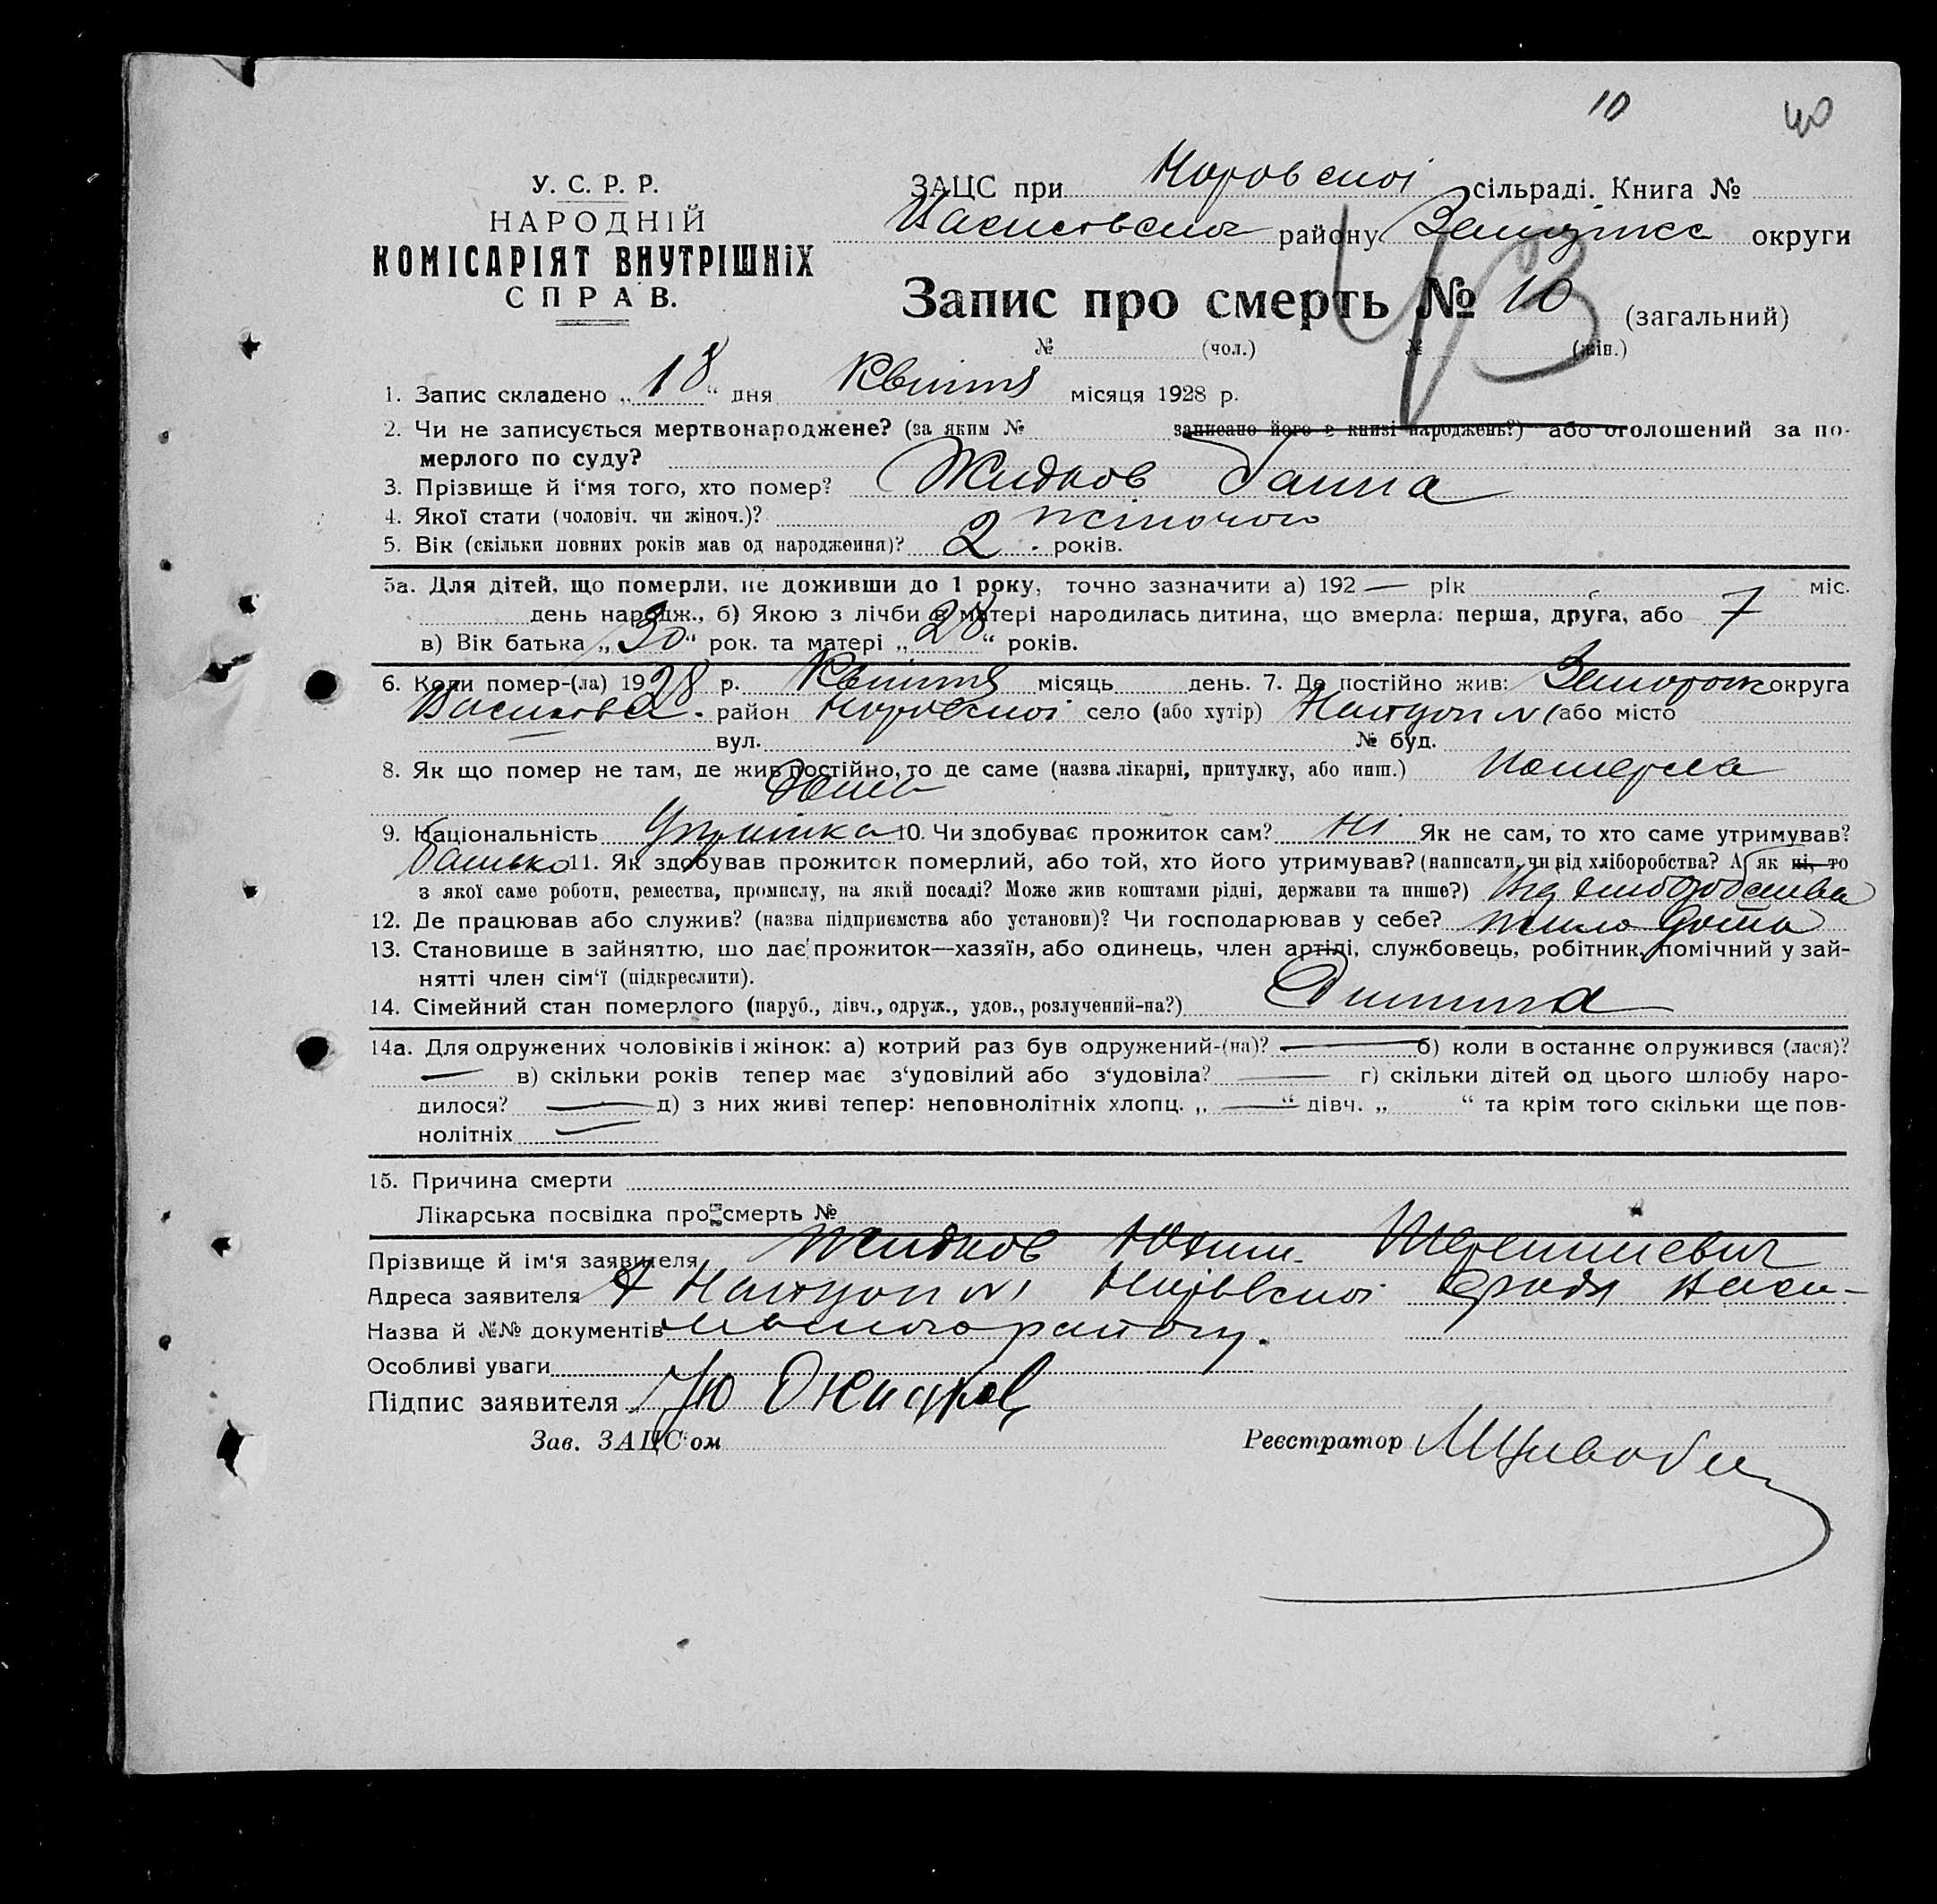 10 40
У. С. Р. Р.
НАРОДНІЙ
КОМІСАРІЯТ ВНУТРІШНІХ
СПРАВ.
ЗАЦС при сільраді. Книга №
району округи
Запис про смерть № 10 (загальний)
43
№ (чол.) № (жін.)
1. Запис складено „18“ дня Квітня місяця 1928 р.
2. Чи не записується мертвонароджене? (за яким № записано його в книзі народжень?) або оголошений за по-
мерлого по суду?
3. Прізвище й і'мя того, хто помер? Жидков Ганна
4. Якої стати (чоловіч. чи жіноч.)? жіночого
5. Вік (скільки повних років мав од народження)? 2 років.
5а. Для дітей, що померли, не доживши до 1 року, точно зазначити а) 192 — рік міс.
день народж., б) Якою з лічби в матері народилась дитина, що вмерла: перша, друга, або 7
в) Вік батька „30“ рок. та матері „28“ років.
6. Коли помер-(ла) 1928 р. Квітня місяць день. 7. Де постійно жив: Запорож округа
район село (або хутір) (або місто
— вул. № буд.
8. Як що помер не там, де жив постійно, то де саме (назва лікарні, притулку, або инш.) Померла
дома
9. Національність Українка 10. Чи здобуває прожиток сам? ні Як не сам, то хто саме утримував?
батько 11. Як здобував прожиток померлий, або той, хто його утримував? (написати, чи від хліборобства? А як ні, то
з якої саме роботи, ремества, промислу, на якій посаді? Може жив коштами рідні, держави та инше?) Від хліборобства
12. Де працював або служив? (назва підприємства або установи)? Чи господарював у себе? жила дома
13. Становище в зайняттю, що дає прожиток—хазяїн, або одинець, член артілі, службовець, робітник, помічний у зай-
нятті член сім'ї (підкреслити).
14. Сімейний стан померлого (паруб., дівч., одруж., удов., розлучений-на?) Дитина
14а. Для одружених чоловіків і жінок: а) котрий раз був одружений-(на)? — б) коли востаннє одружився (лася)?
— в) скільки років тепер має з'удовілий або з'удовіла? — г) скільки дітей од цього шлюбу наро-
дилося? — д) з них живі тепер: неповнолітніх хлопц. „—“ дівч. „ “ та крім того скільки ще пов-
нолітніх —
15. Причина смерти
Лікарська посвідка про смерть №
Прізвище й ім'я заявителя Жидков Юхим
Адреса заявителя
Назва й №№ документів району.
Особливі уваги
Підпис заявителя Ю Жидков
Зав. ЗАЦС'ом Реєстратор